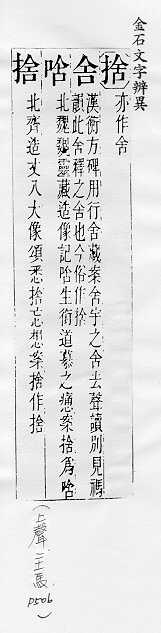 金石文字辨異
捨 亦作舍
舍 漢衡方碑用行舍藏案舍字之舍去聲讀別見禡
韻此舍釋之舍也今俗作捨
啥 北魏魏靈藏造像記啥生衍道慕之憑案捨爲啥
捨 北齊造丈八大像頌悉捨忘想案捨作捨
(上聲 馬 P506)